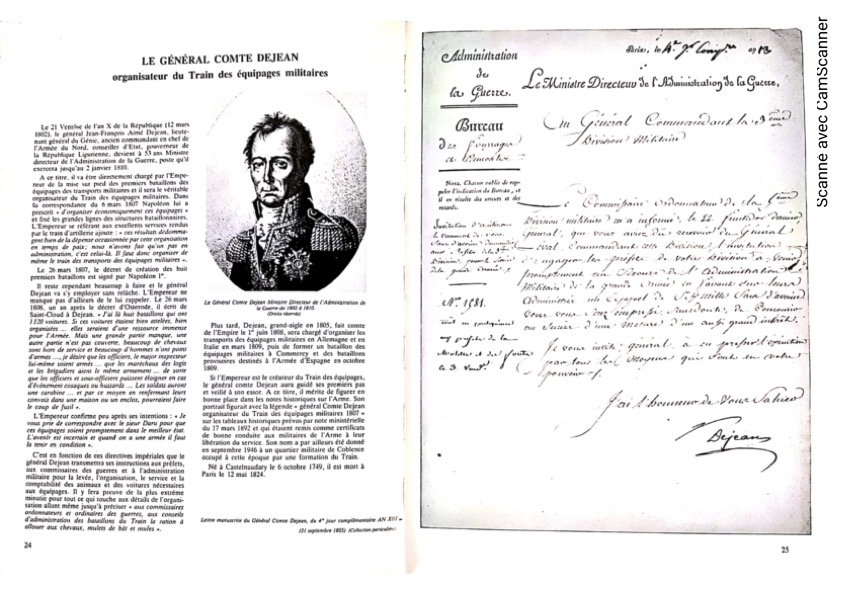 LE GÉNÉRAL COMTE DEJEAN
organisateur du Train des équipages militaires
Le 21 Ventôse de l'an X de la République (12 mars
1802), le général Jean-François Aimé Dejean, lieute-
nant général du Génie, ancien commandant en chef de
l'Armée du Nord, conseiller d'État, gouverneur de
la République Ligurienne, devient à 53 ans Ministre
directeur de l'Administration de la Guerre, poste qu'il
exercera jusqu'au 2 janvier 1810.
A ce titre, il va être directement chargé par l'Empe-
reur de la mise sur pied des premiers bataillons des
équipages des transports militaires et il sera le véritable
organisateur du Train des équipages militaires. Dans
la correspondance du 6 mars 1807 Napoléon lui a
prescrit « d'organiser économiquement ces équipages »
et fixé les grandes lignes des structures bataillonnaires.
L'Empereur se référant aux excellents services rendus
par le train d'artillerie ajoute : « ces résultats dédomma-
gent bien de la dépense occasionnée par cette organisation
en temps de paix; nous n'avons fait qu'un pas en
administration, c'est celui-là. Il faut donc organiser de
même le train des transports des équipages militaires ».
Le 26 mars 1807, le décret de création des huit
premiers bataillons est signé par Napoléon 1er.
Il reste cependant beaucoup à faire et le général
Dejean va s'y employer sans relâche. L'Empereur ne
manque pas d'ailleurs de le lui rappeler. Le 26 mars
1808, un an après le décret d'Osterode, il écrit de
Saint-Cloud à Dejean. « J'ai là huit bataillons qui ont
1120 voitures. Si ces voitures étaient bien attelées, bien
organisées ... elles seraient d'une ressource immense
pour l'Armée. Mais une grande partie manque, une
autre partie n'est pas couverte, beaucoup de chevaux
sont hors de service et beaucoup d'hommes n'ont point
d'armes ..., je désire que les officiers, le major inspecteur
lui-même soient armés ... que les maréchaux des logis
et les brigadiers aient le même armement ... de sorte
que les officiers et sous-officiers puissent éloigner en cas
d'événement cosaques ou hussards ... Les soldats auront
une carabine ... et par ce moyen en renfermant leurs
convois dans une maison ou un enclos, pourraient faire
le coup de fusil ».
L'Empereur confirme peu après ses intentions : « Je
vous prie de correspondre avec le sieur Daru pour que
ces équipages soient promptement dans le meilleur état.
L'avenir est incertain et quand on a une armée il faut
la tenir en condition ».
C'est en fonction de ces directives impériales que le
général Dejean transmettra ses instructions aux préfets,
aux commissaires des guerres et à l'administration
militaire pour la levée, l'organisation, le service et la
comptabilité des animaux et des voitures nécessaires
aux équipages. Il y fera preuve de la plus extrême
minutie pour tout ce qui touche aux détails de l'organi-
sation allant même jusqu'à préciser « aux commissaires
ordonnateurs et ordinaires des guerres, aux conseils
d'administration des bataillons du Train la ration à
allouer aux chevaux, mulets de bât et mules ».
24
Le Général Comte Dejean Ministre Directeur de l'Administration de
la Guerre de 1802 à 1810.
Plus tard, Dejean, grand-aigle en 1805, fait comte
de l'Empire le 1er juin 1808, sera chargé d'organiser les
transports des équipages militaires en Allemagne et en
Italie en mars 1809, puis de former un bataillon des
équipages militaires à Commercy et des bataillons
provisoires destinés à l'Armée d'Espagne en octobre
1809.
Si l'Empereur est le créateur du Train des équipages,
le général comte Dejean aura guidé ses premiers pas
et veillé à son essor. A ce titre, il mérite de figurer en
bonne place dans les noms historiques sur l'Arme. Son
portrait figurait avec la légende « général Comte Dejean
organisateur du Train des équipages militaires 1807 »
sur les tableaux historiques prévus par note ministérielle
du 17 mars 1892 et qui étaient remis comme certificats
de bonne conduite aux militaires de l'Arme à leur
libération du service. Son nom a par ailleurs été donné
en septembre 1946 à un quartier militaire de Coblence
occupé à cette époque par une formation du Train.
Né à Castelnaudary le 6 octobre 1749, il est mort à
Paris le 12 mai 1824.
Lettre manuscrite du Général Comte Dejean, du 4e jour complémentaire AN XIII
(21 septembre 1805). (Collection particulière)
Administration
de
la Guerre.
Bureau
des Fourrages
Nota. Chacun oublie de rap-
peler l'indication du Bureau, et
il en résulte des erreurs et des
retards.
N.° 1581.
le 4e Jr Compre an 13
Le Ministre Directeur de l'Administration de la Guerre,
Au Général Commandant la 5eme
Division Militaire
Le Commissaire ordonnateur de la 5eme
Division militaire m'a informé, le 22 fructidor dernier
Général, que vous aviez dû recevoir du Général
Commandant cette Division, l'invitation
d'engager les préfets de votre Division à venir
promptement au Secours de l'Administration
Militaire de la grande Armée en faisant sur leurs
d'une mesure d'un aussi grand intérêt.
Je vous invite, général, à en presser l'exécution
par tous les moyens qui sont en votre
pouvoir.
J'ai l'honneur de vous Saluer
Dejean
25
Scanné avec CamScanner